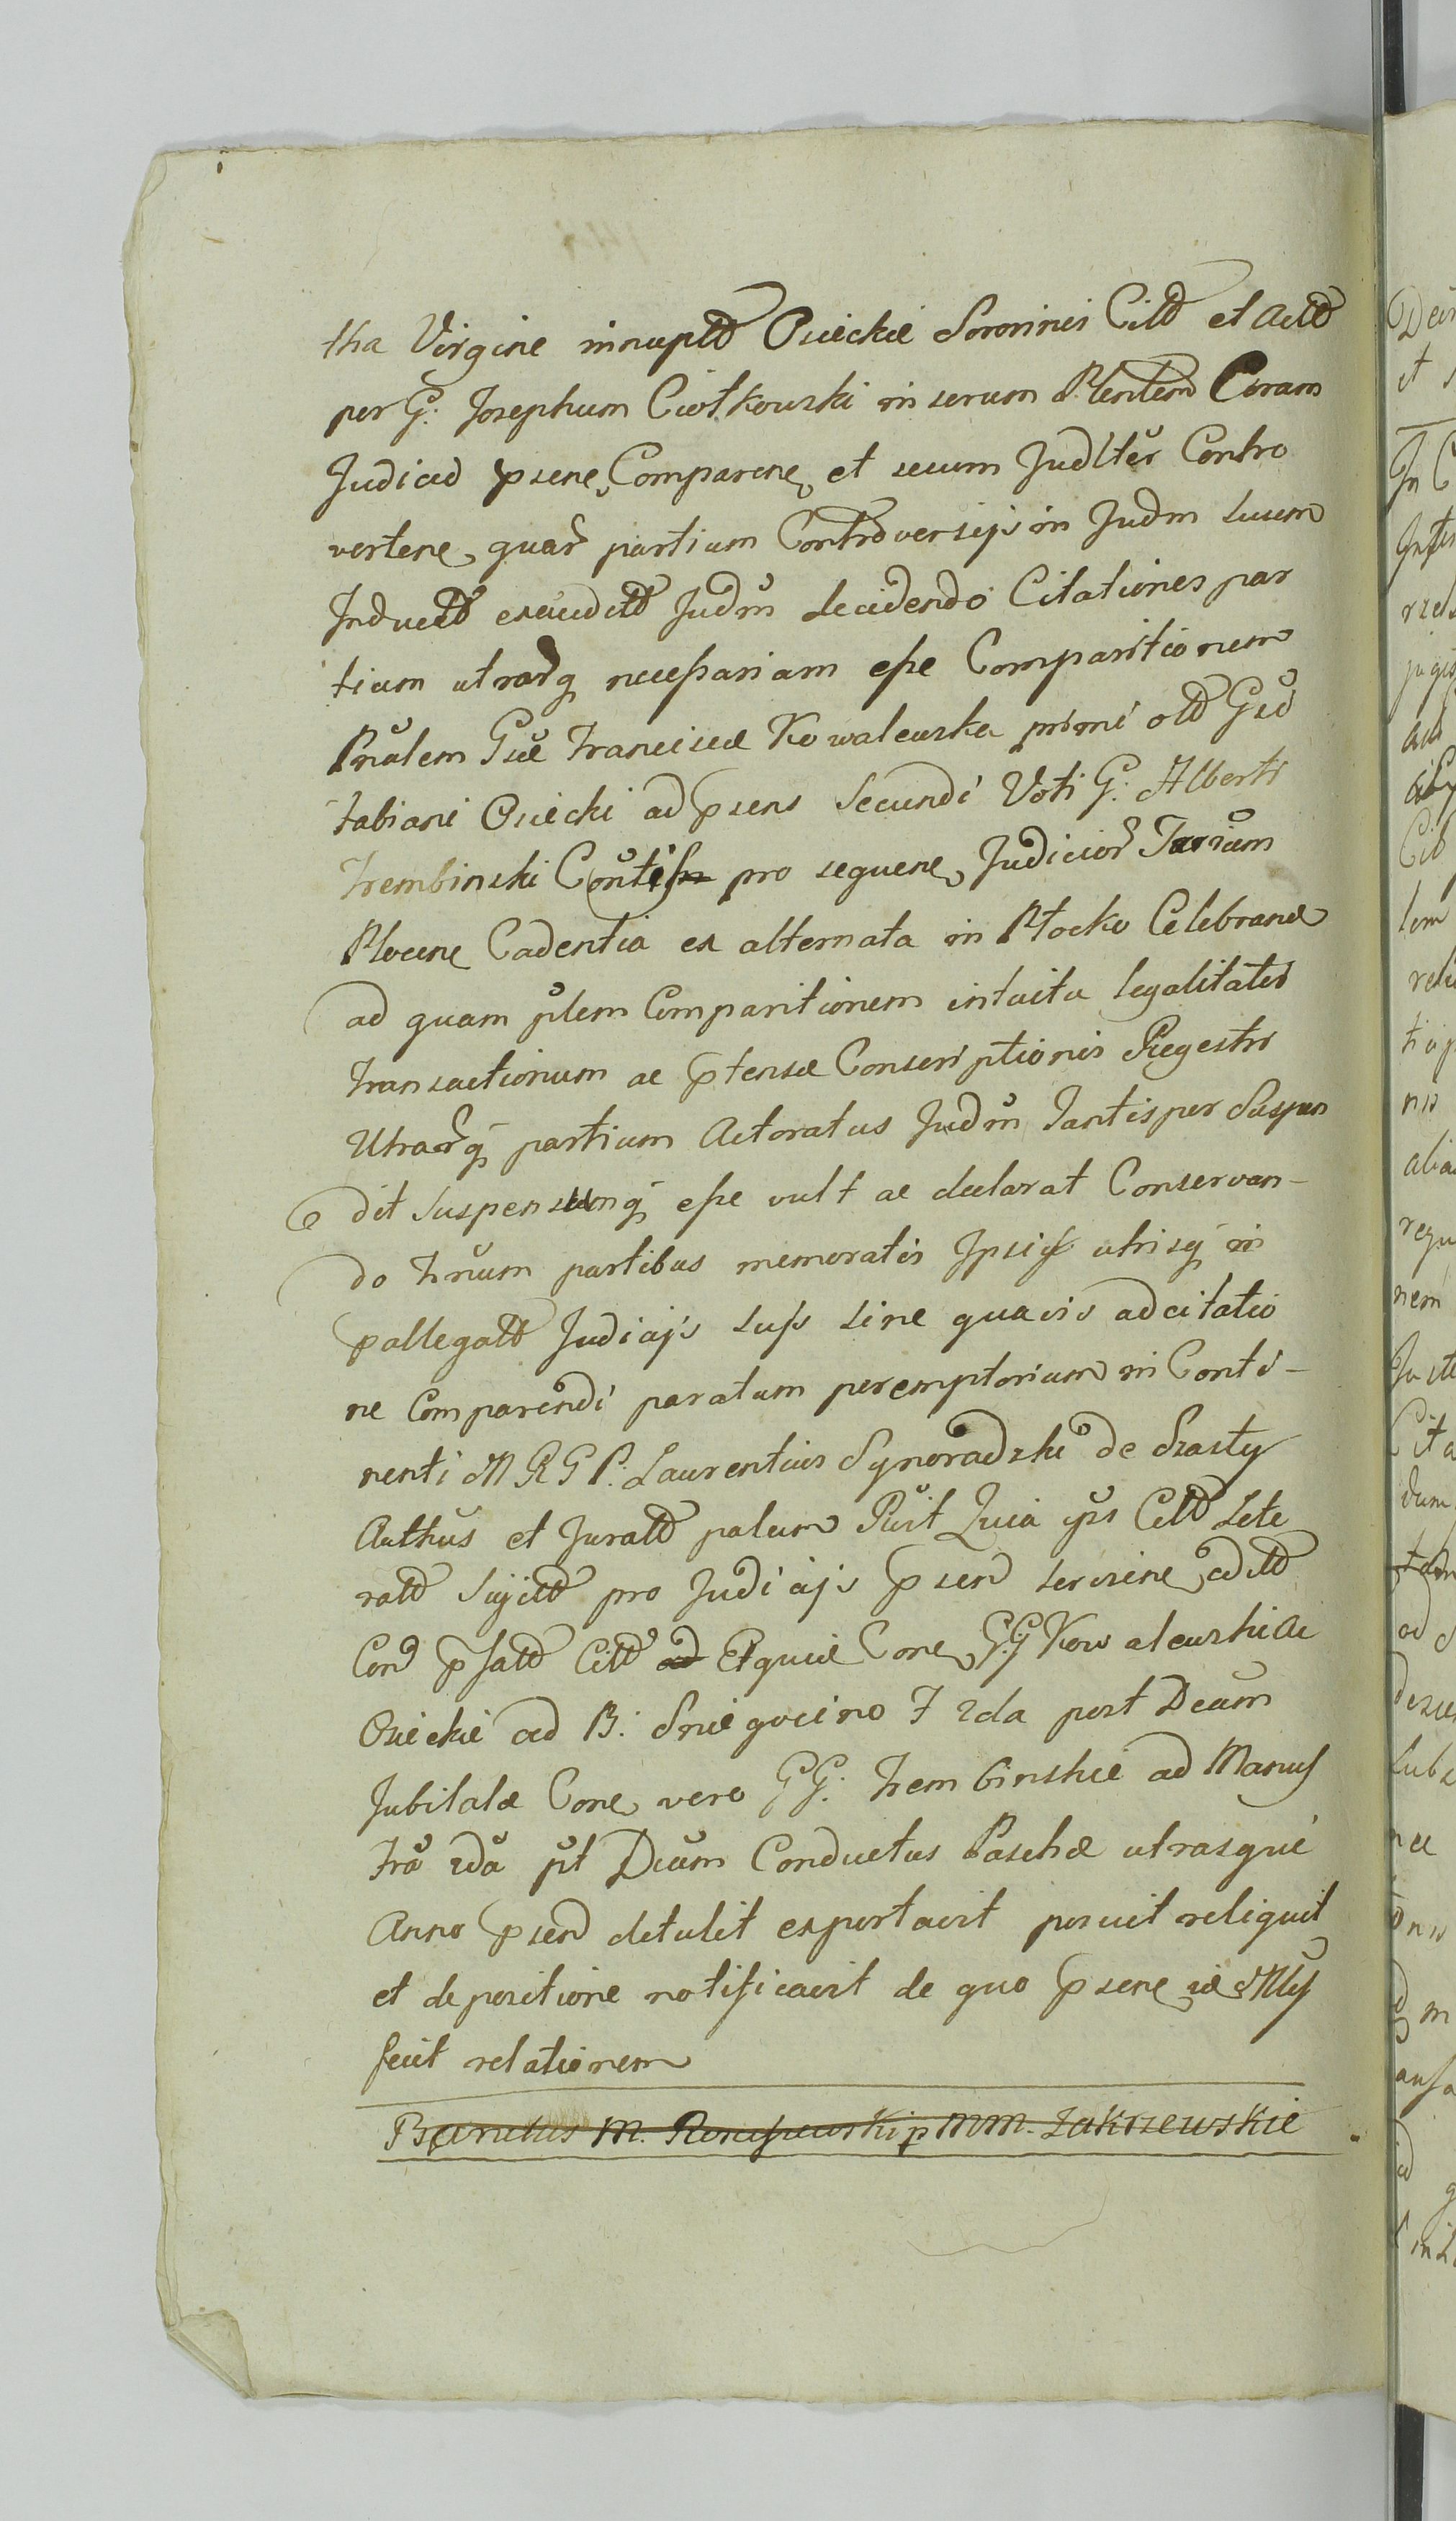 tha Virgine innuptd Osieckie Sororines Citd et Actd
per G: Josephum Ciołkowski in serum Plentem Coram
Judicio psene Comparene et secum Judlter Contro
vertene quar partium Controversijs in Judm suum
Induct exaudittd Judm decidendo Citationes par
tium utrarq necessariam esse Comparitionem
Prulem Gsae Franciscae Kowalewska primi old Gsi
Fabiani Osiecki ad psens Secundi Voti G: Alberti
Trembinski pro sequene Judicior Trrium
Plocene Cadentia ex alternata in Płocko Celebrand
ad quam plem Comparitionem intuitu legalitatis
transactionum ac ptensae Conscriptionis Regestri
Utrarq partium Actoratus Judm Tantisper Suspen
dit suspensumq esse vult ac declarat Conservan-
do trnum partibus memoratis Ipsis utrisq in
pallegattd Judicijs suis sine quavis adcitatio
ne Comparendi paratum peremptorium in Conti-
nenti M R G P: Laurentius Synoradzki de Szasty
Authus et Juratd palum Quia ips Citd Lite
ratd pro Judicijs psend serviene editd
Cond psattd Cittd ad Et quia Cone G:G Kowalewskie ac
Osieckie ad B: Sniegocino F 2da post Dcam
Jubilate Cone vero GG: Trembinskie ad Manus
Fra 2da pt Dcam Conductus Paschae utrasque
Anno psend detulit exportavit posuit reliquit
et depositione notificavit de quo psene
fecit relationem
M. MM. Zakrzewskie